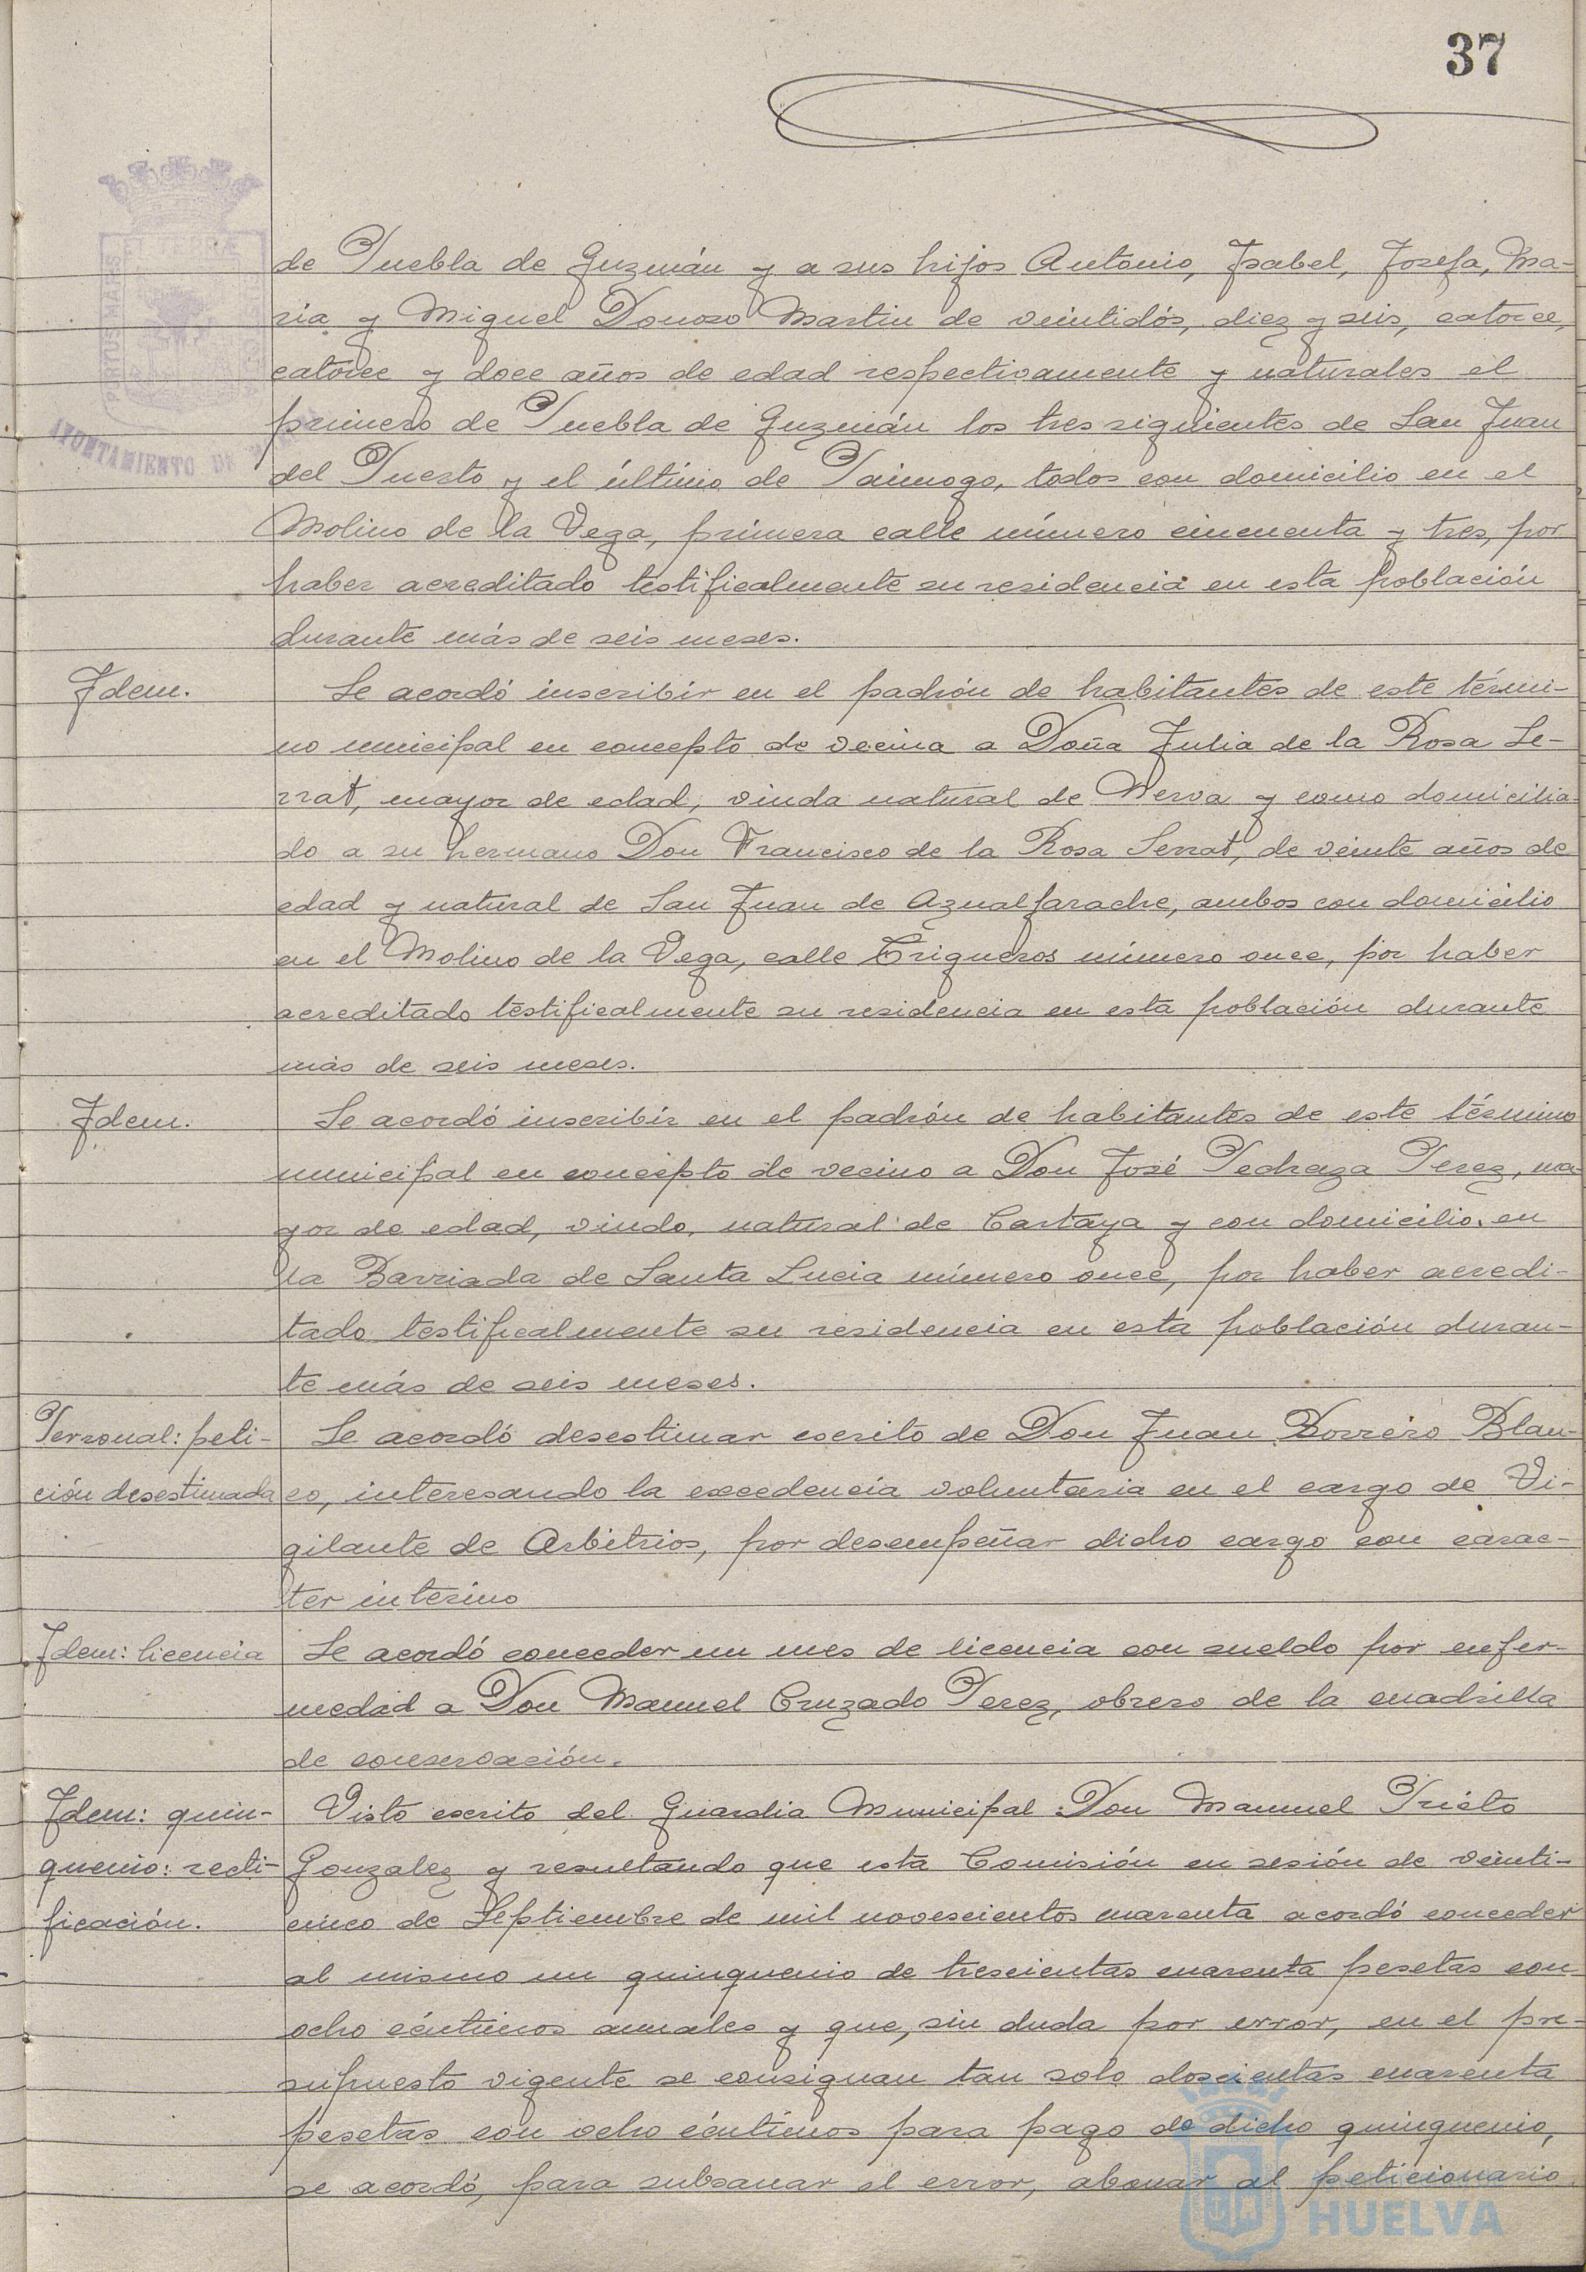 37
de Puebla de Guzmán y a sus hijos Antonio, Isabel, Josefa, Ma-
ría y Miguel Donoso Martin de veintidós, diez y seis, catorce,
catorce y doce años de edad respectivamente y naturales el
primero de Puebla de Guzmán los tres siguientes de San Juan
del Puerto y el último de Paimogo, todos con domicilio en el
Molino de la Vega, primera calle número cincuenta y tres, por
haber acreditado testificalmente su residencia en esta población
durante más de seis meses.
Idem.
Se acordó inscribir en el padrón de habitantes de este térmi-
no municipal en concepto de vecina a Doña Julia de la Rosa Se-
rrat, mayor de edad, viuda natural de Nerva y como domicilia-
do a su hermano Don Francisco de la Rosa Serrat, de veinte años de
edad y natural de San Juan de Aznalfarache, ambos con domicilio
en el Molino de la Vega, calle Trigueros número once, por haber
acreditado testificalmente su residencia en esta población durante
más de seis meses.
Idem.
Se acordó inscribir en el padrón de habitantes de este término
municipal en concepto de vecino a Don José Pedraza Perez, ma-
yor de edad, viudo, natural de Cartaya y con domicilio en
la Barriada de Santa Lucia número once, por haber acredi-
tado testificalmente su residencia en esta población duran-
te más de seis meses.
Personal: peti-
ción desestimada
Se acordó desestimar escrito de Don Juan Borrero Blan-
co, interesando la excedencia voluntaria en el cargo de Vi-
gilante de Arbitrios, por desempeñar dicho cargo con carac-
ter interino
Idem: licencia
Se acordó conceder un mes de licencia con sueldo por enfer-
medad a Don Manuel Cruzado Perez, obrero de la cuadrilla
de conservación.
Idem: quin-
quenio: recti-
ficación.
Visto escrito del Guardia Municipal Don Manuel Prieto
Gonzalez y resultando que esta Comisión en sesión de veinti-
cinco de Septiembre de mil novecientos cuarenta acordó conceder
al mismo un quinquenio de trescientas cuarenta pesetas con
ocho céntimos anuales y que, sin duda por error, en el pre-
supuesto vigente se consignan tan solo doscientas cuarenta
pesetas con ocho céntimos para pago de dicho quinquenio,
se acordó, para subsanar el error, abonar al peticionario
AYUNTAMIENTO DE
HUELVA